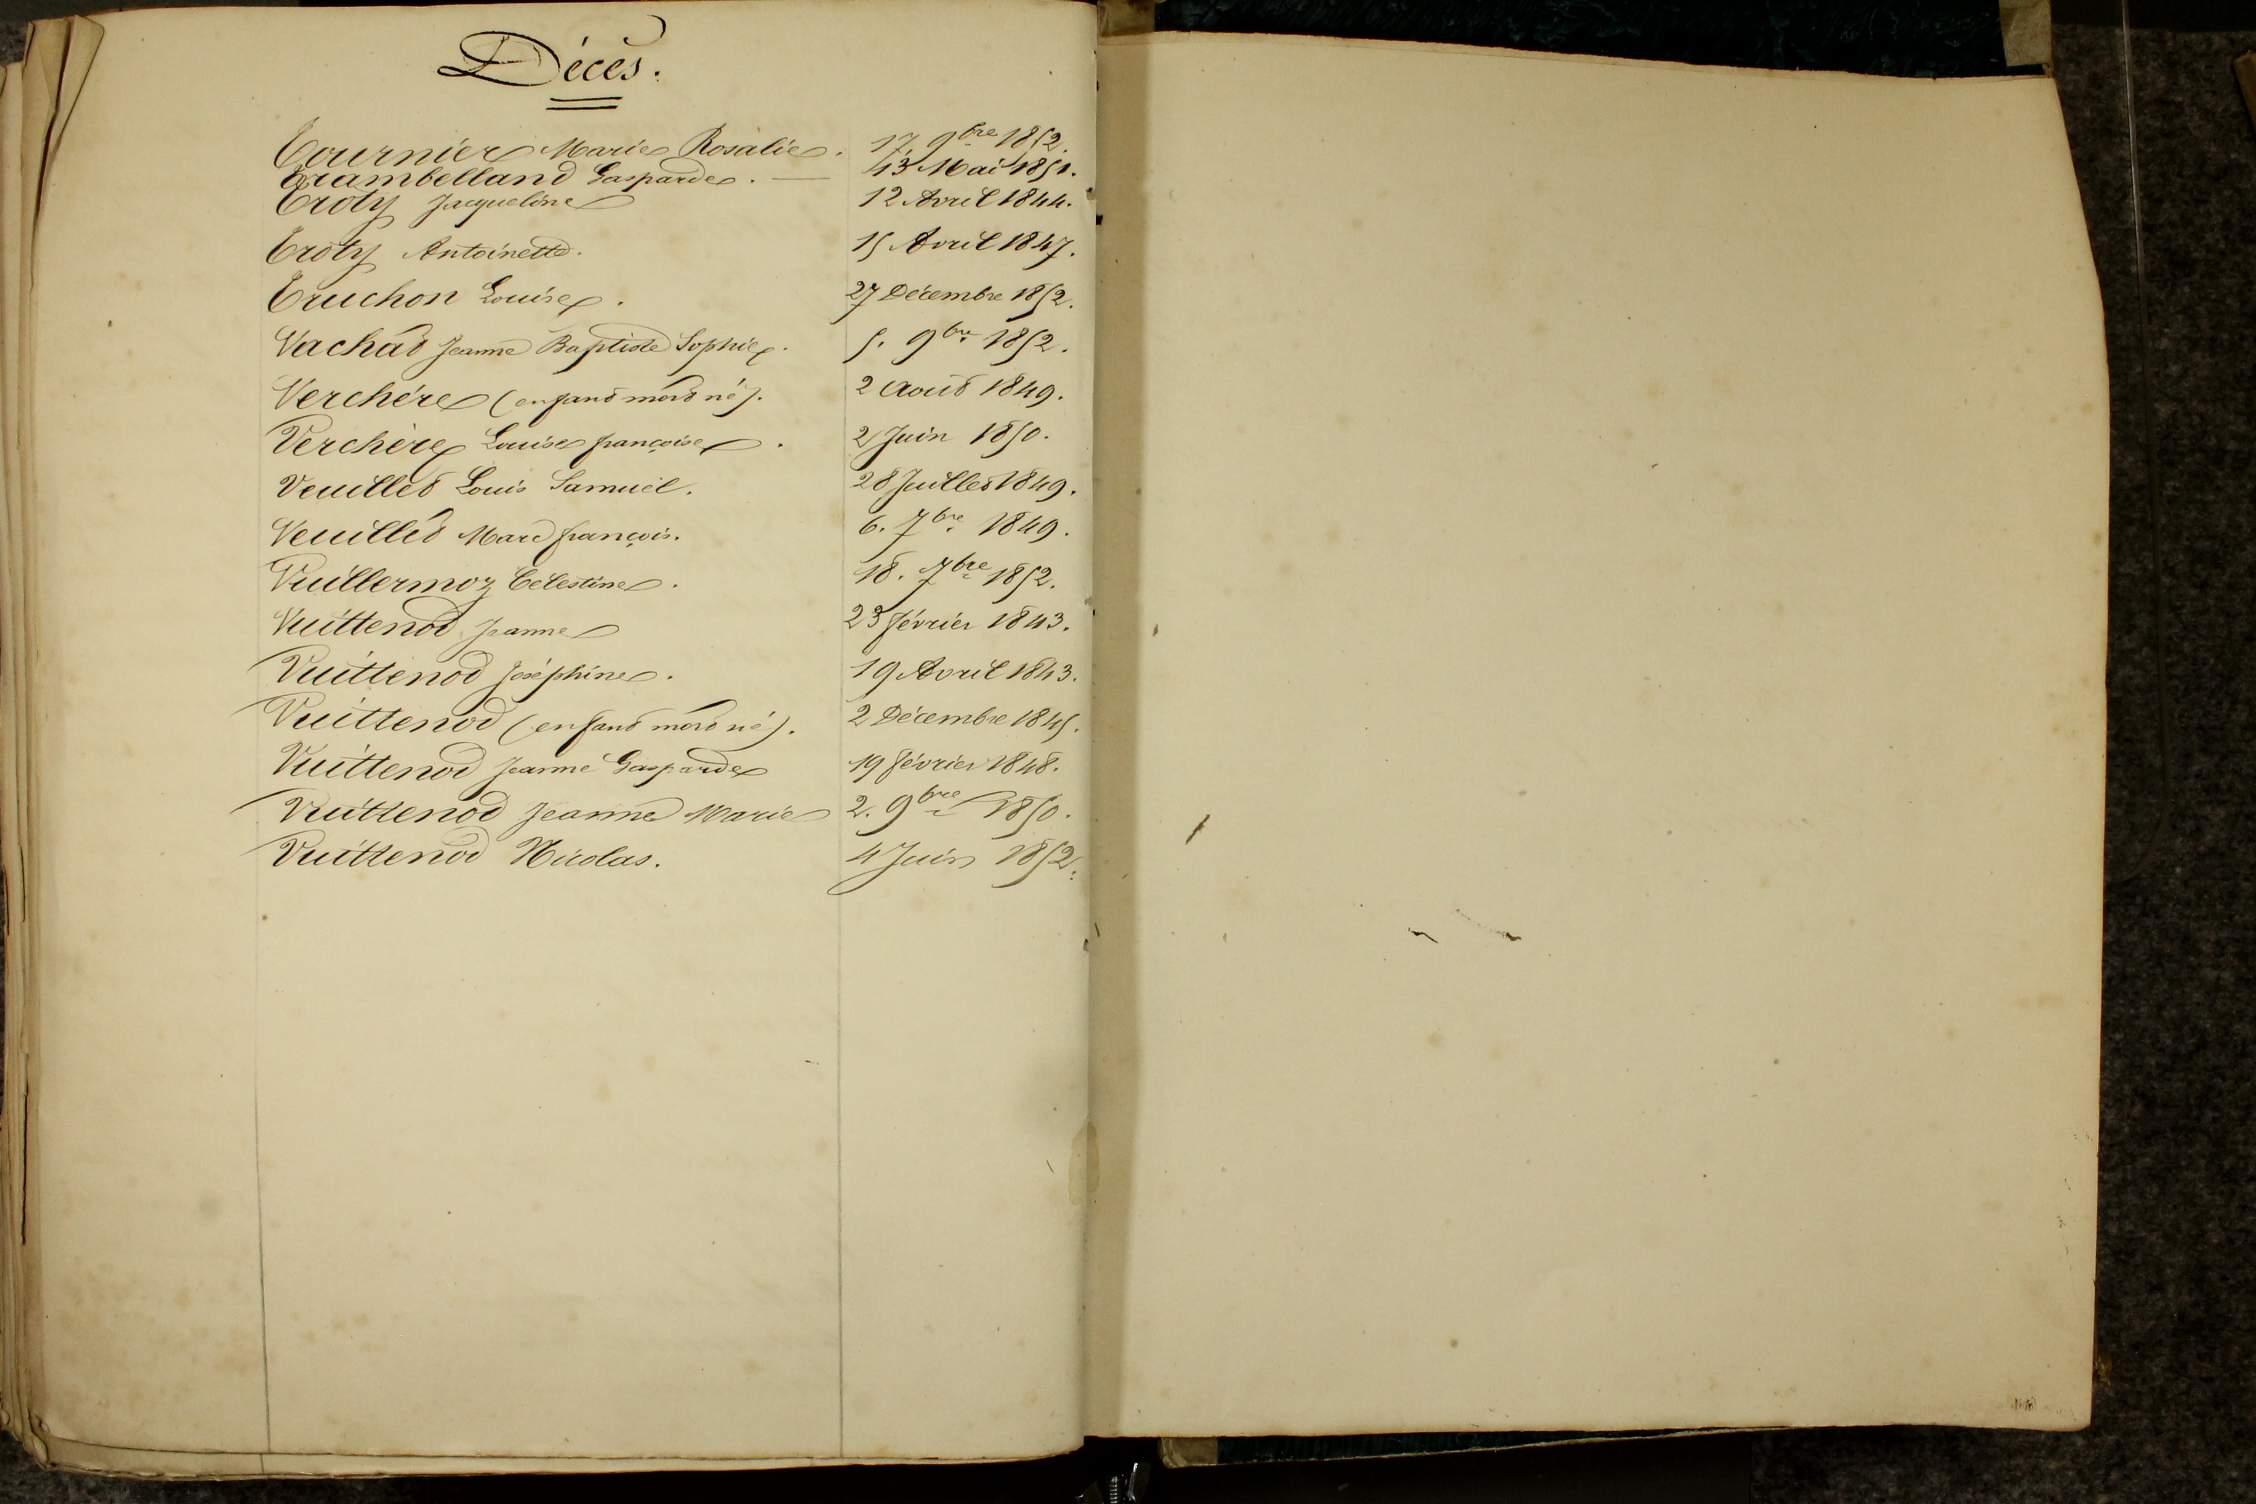 Décès.
Tournier Marie Rosalie. 17. 9bre 1852.
Trambelland Gasparde. — 13 Mai 1851.
Troty Jacqueline 12 Avril 1844.
Troty Antoinette. 15 Avril 1847.
Truchon Louise. 27 Décembre 1852.
Vachat Jeanne Baptiste Sophie. 5. 9bre 1852.
Verchère (enfant mort né). 2 Août 1849.
Verchère Louise françoise. 2 Juin 1850.
Veuillet Louis Samuel. 28 Juillet 1849.
Veuillet Marc françois. 6. 7bre 1849.
Vuillermoz Célestine. 18. 7bre 1852.
Vuittenod Jeanne 23 février 1843.
Vuittenod Joséphine. 19 Avril 1843.
Vuittenod (enfant mort né). 2 Décembre 1845.
Vuittenod Jeanne Gasparde 19 février 1848.
Vuittenod Jeanne Marie 2. 9bre 1850.
Vuittenod Nicolas. 4 Juin 1852.